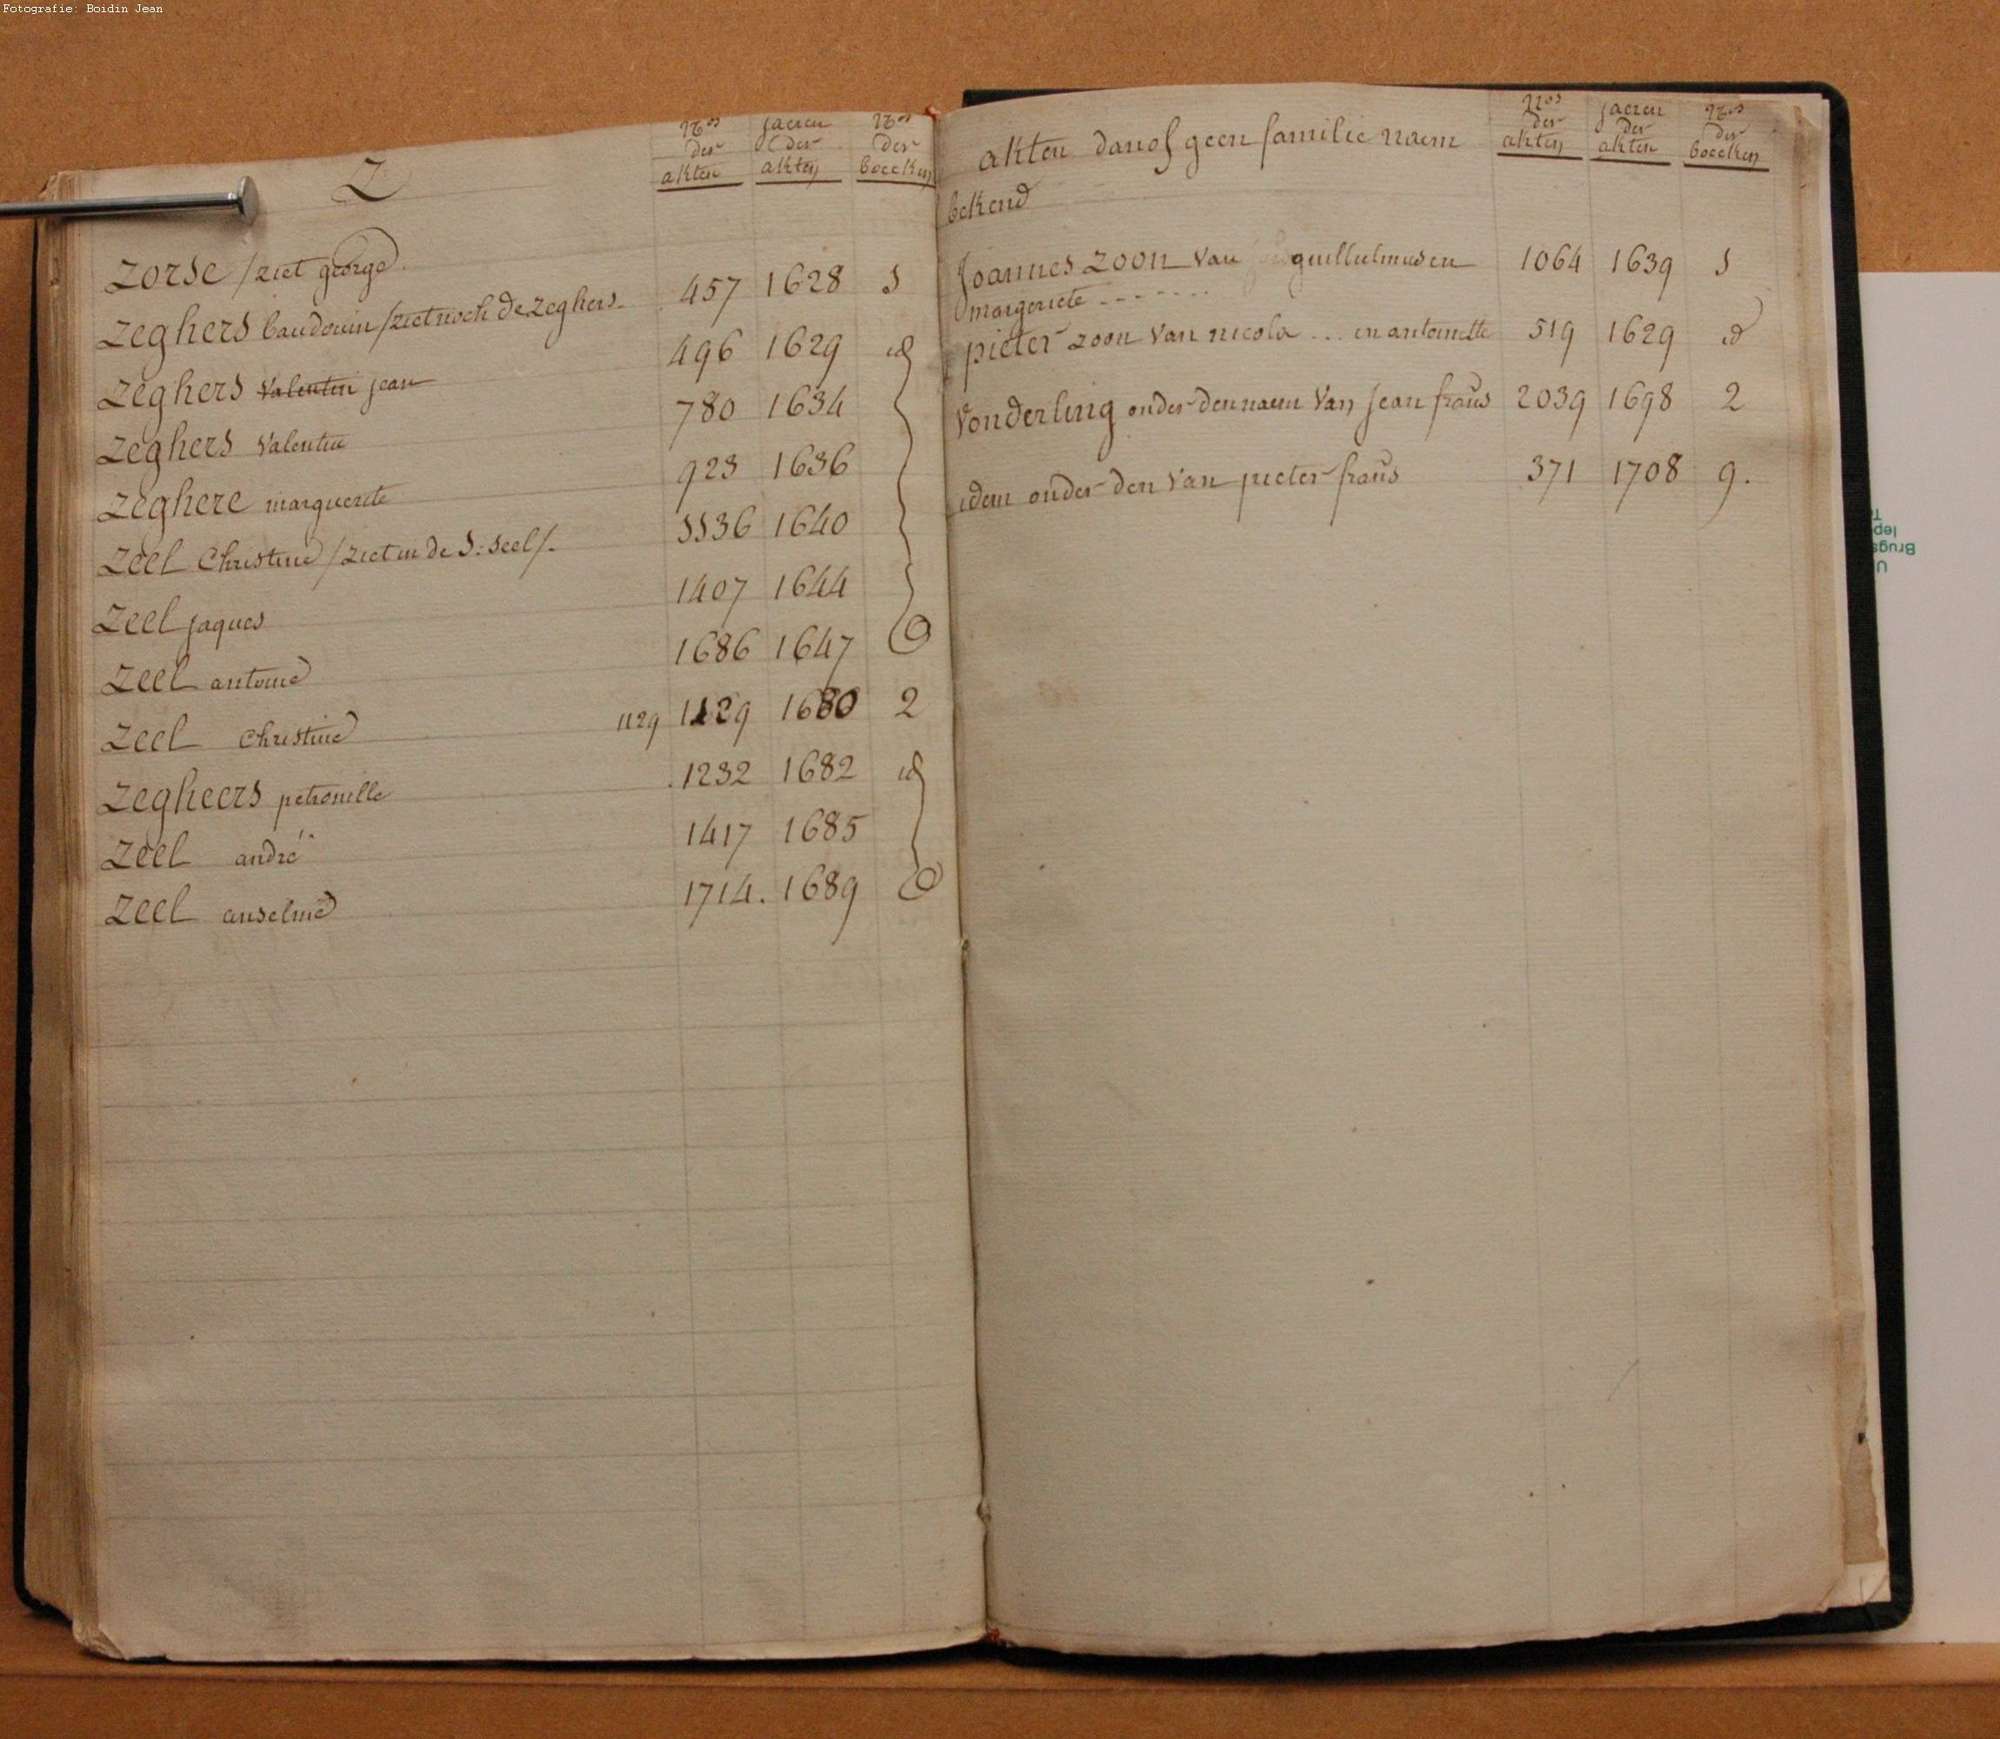 Fotografie: Boidin Jean
Z
Nos der akten
jaeren der akten
Nos der boecken
Zorse /ziet george 457 1628 1
Zeghers baudouin /ziet noch de zeghers 496 1629 id
Zeghers Valentin jean 780 1634
Zeghers Valentin 923 1636
Zeghere marguerite 1136 1640
Zeel Christine /ziet in de S: Seel/. 1407 1644
Zeel jaques 1686 1647
Zeel antoine 1129 1129 1680 2
Zeel Christine 1232 1682 id
Zegheers petronille 1417 1685
Zeel andré 1714. 1689
Zeel anselme
akten danof geen familie naem
bekend
Nos der akten
jaeren der akten
Nos der boecken
Joannes zoon van guillielmus en 1064 1639 1
margeriete - - - - - - -
pieter zoon van nicola ... en antoinette 519 1629 id
Vonderling onder den naem Van jean frans 2039 1698 2
idem onder den Van pieter frans 371 1708 9.
Brugs